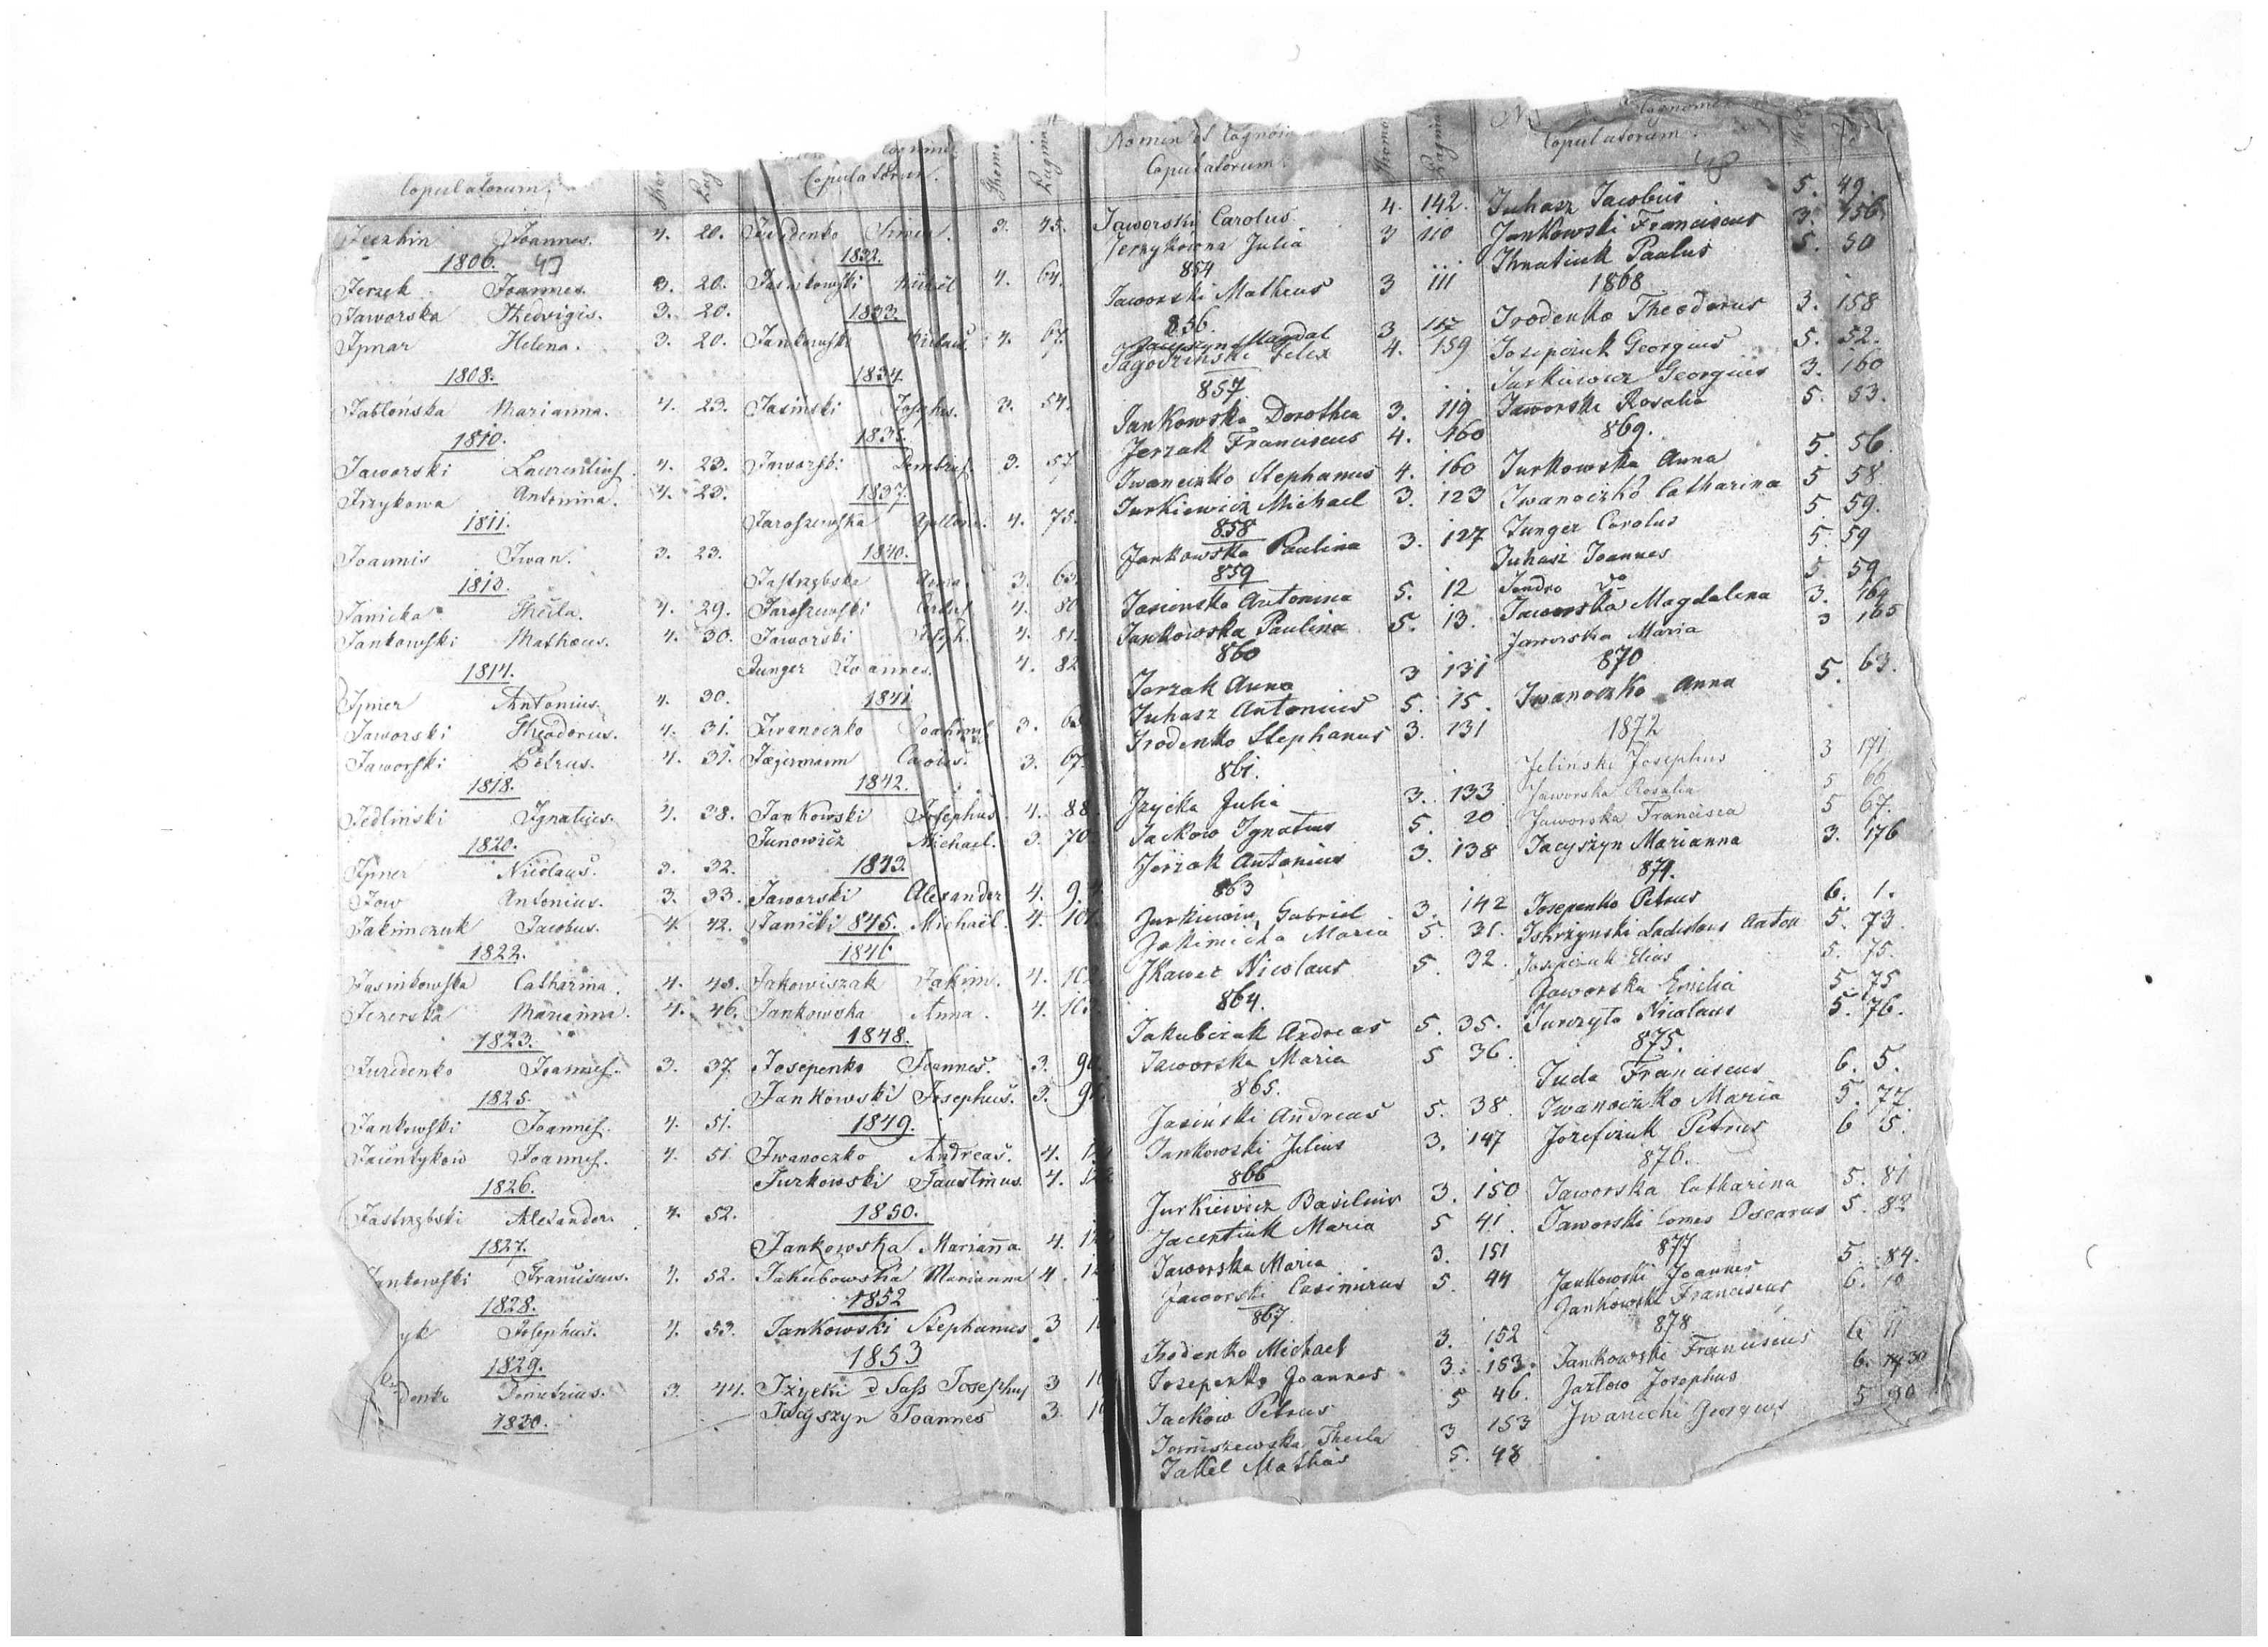 Copulatorum.
Jeczhin Joannes. 4. 20.
1806.
Jerzek Joannes. 3. 20.
Jaworska Hedvigis. 3. 20.
Jpnar Helena. 3. 20.
1808.
Jabłońska Marianna. 4. 23.
1810.
Jaworski Laurentius. 4. 23.
Jrzykowa Antonina. 4. 23.
1811.
Joannis Iwan. 3. 23.
1813.
Janicka Thecla. 4. 29.
Jankowski Matheus. 4. 30.
1814.
Jpner Antonius. 4. 30.
Jaworski Theodorus. 4. 31.
Jaworski Petrus. 4. 31.
1818.
Jedliński Ignatius. 4. 38.
1820.
Jpner Nicolaus. 3. 32.
Jow Antonius. 3. 33.
Jakimczuk Jacobus. 4. 42.
1822.
Jasinkowska Catharina. 4. 43.
Jezerska Marianna. 4. 46.
1823.
Juredenko Joannes. 3. 37.
1825.
Jankowski Joannes. 4. 51.
Joannes. 4. 51.
1826.
Jastrzębski Alexander. 4. 52.
1827.
Jankowski Franciscus. 4. 52.
1828.
yk Josephus. 4. 53.
1829.
denko Dimitrius. 3. 44.
1830.
Copulatorum.
3. 45.
1832.
Jasinkowski 4. 64.
1833.
Jankowski 4. 67.
1834.
Jasiński Josephus. 3. 54.
1835.
Jaworski 3. 57.
1837.
Jaroszewska 4. 75.
1840.
Jastrzębska Anna. 3. 63.
Jaroszewski 4. 80.
Jaworski Joseph. 4. 81.
Junger Joannes. 4. 82.
1841.
Iwanoczko 3. 65.
Jägermann Carolus. 3. 67.
1842.
Jankowski Josephus. 4. 88.
Junowicz Michael. 3. 70.
1843.
Jaworski Alexander 4. 9
Janicki 845. Michael. 4. 101.
1846
Jakowiszak Jakim. 4. 10
Jankowska Anna. 4. 10
1848.
Josepenko Joannes. 3. 9
Jankowski Josephus. 3. 9
1849.
Iwanoczko Andreas. 4. 1
Jurkowski Faustinus. 4. 1
1850.
Jankowska Marianna 4. 1
Jakubowska Marianna 4. 1
1852
Jankowski Stephanus 3 1
1853
Iżycki d Sass Josephus 3 1
Jacyszyn Joannes 3. 1
Nomen et Cognom
Copulatorum.
Jaworski Carolus. 4. 142.
Jerzykowna Julia 3 110
854
Jaworski Matheus 3 111
856.
Jacyszyn Magdal 3 117
Jagodzinski Felix 4. 159
857.
Jankowska Dorothea 3. 119
Jerzak Franciscus 4. 160
Iwaneczko Stephanus 4. 160
Jurkiewicz Michael 3. 123
858
Jankowska Paulina 3. 127
859
Jasienska Antonina 5. 12
Jankowska Paulina 5. 13.
860
Jerzak Anna 3 131
Juhasz Antonius 5. 15.
Irodenko Stephanus 3. 131
861.
Izycka Julia 3. 133
Jackow Ignatius 5. 20
Jerzak Antonius 3. 138
863
Jurkiewicz Gabriel 3. 142
Jakimicka Maria 5. 31.
Jkawec Nicolaus 5. 32.
864.
Jakubczak Andreas 5. 35.
Jaworska Maria 5 36.
865.
Jasiński Andreas 5. 38.
Jankowski Julius 3. 147
866
Jurkiewicz Basilius 3. 150
Jacentiuk Maria 5 41
Jaworska Maria 3. 151
Jaworski Casimirus 5. 44
867.
Irodenko Michael 3. 152
Josepenko Joannes 3. 153.
Jackow Petrus 5 46.
Jomiszewska Thecla 3 153
Jakel Mathias 5. 48
Cognomen
Copulatorum.
Juhasz Jacobus 5. 49.
Jankowski Franciscus 3. 156
Ihnatiuk Paulus 5. 50
1868
Irodenko Theodorus 3. 158
Josepczuk Georgius 5. 52.
Jurkiewicz Georgius 3. 160
Jaworski Rosalia 5. 53.
869.
Jurkowska Anna 5. 56
Iwanoczko Catharina 5 58.
Junger Carolus 5. 59.
Juhasz Joannes 5. 59
Jendro 5 59
Jaworska Magdalena 3. 164
Jaworska Maria 3 165
870
Iwanoczko Anna 5. 63.
1872
Jelinski Josephus 3 171
Jaworska Rosalia 5 66
Jaworska Francisca 5 67.
Jacyszyn Marianna 3. 176
874.
Josepenko Petrus 6. 1.
Iskrzynski Ladislaus Anton 5. 73.
Josepczuk Elias 5. 75.
Jaworska Emilia 5. 75
Jurczyto Nicolaus 5. 76.
875.
Juda Franciscus 6. 5.
Iwanoczko Maria 5. 77.
Józefczuk Petrus 6 5.
876.
Jaworska Catharina 5. 81
Jaworski Comes Oscarus 5. 82
877
Jankowski Joannes 5. 84.
Jankowski Franciscus 6. 10
878
Jankowski Franciscus 6 11
Jaztow Josephus 6. 30
Iwanicki Georgius 5 90